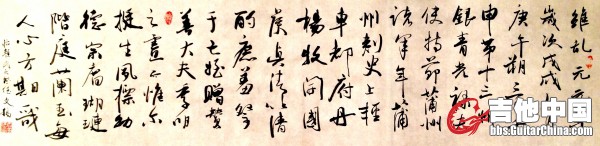 維乾元元年
歲次戊戌九月
庚午朔三日壬
申第十三叔
銀青光祿夫
使持節蒲州
諸軍事蒲
州刺史上輕
車都尉丹
楊牧開國
侯真卿以清
酌庶羞祭
于亡姪贈贊
善大夫季明
之靈曰惟爾
挺生夙標幼
德宗廟瑚璉
階庭蘭玉每
慰
人心方期戩
吉他中国
bbs.GuitarChina.com